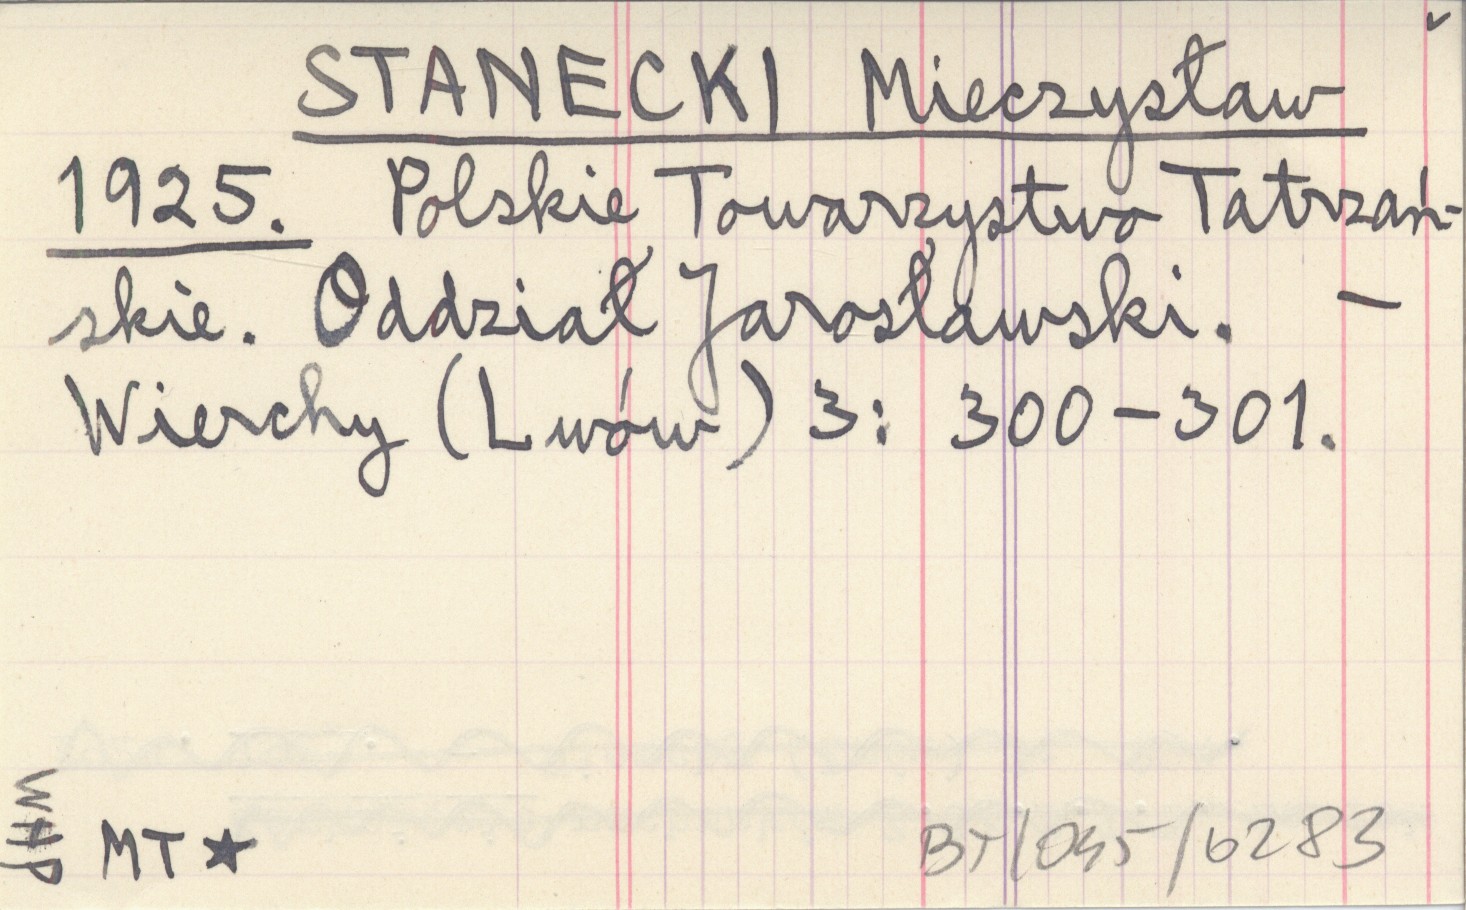 STANECKI Mieczysław
1925. Polskie Towarzystwo Tatrzań-
skie. Oddział Jarosławski. —
Wierchy (Lwów) 3: 300-301.
MT ★
BT/045/6283